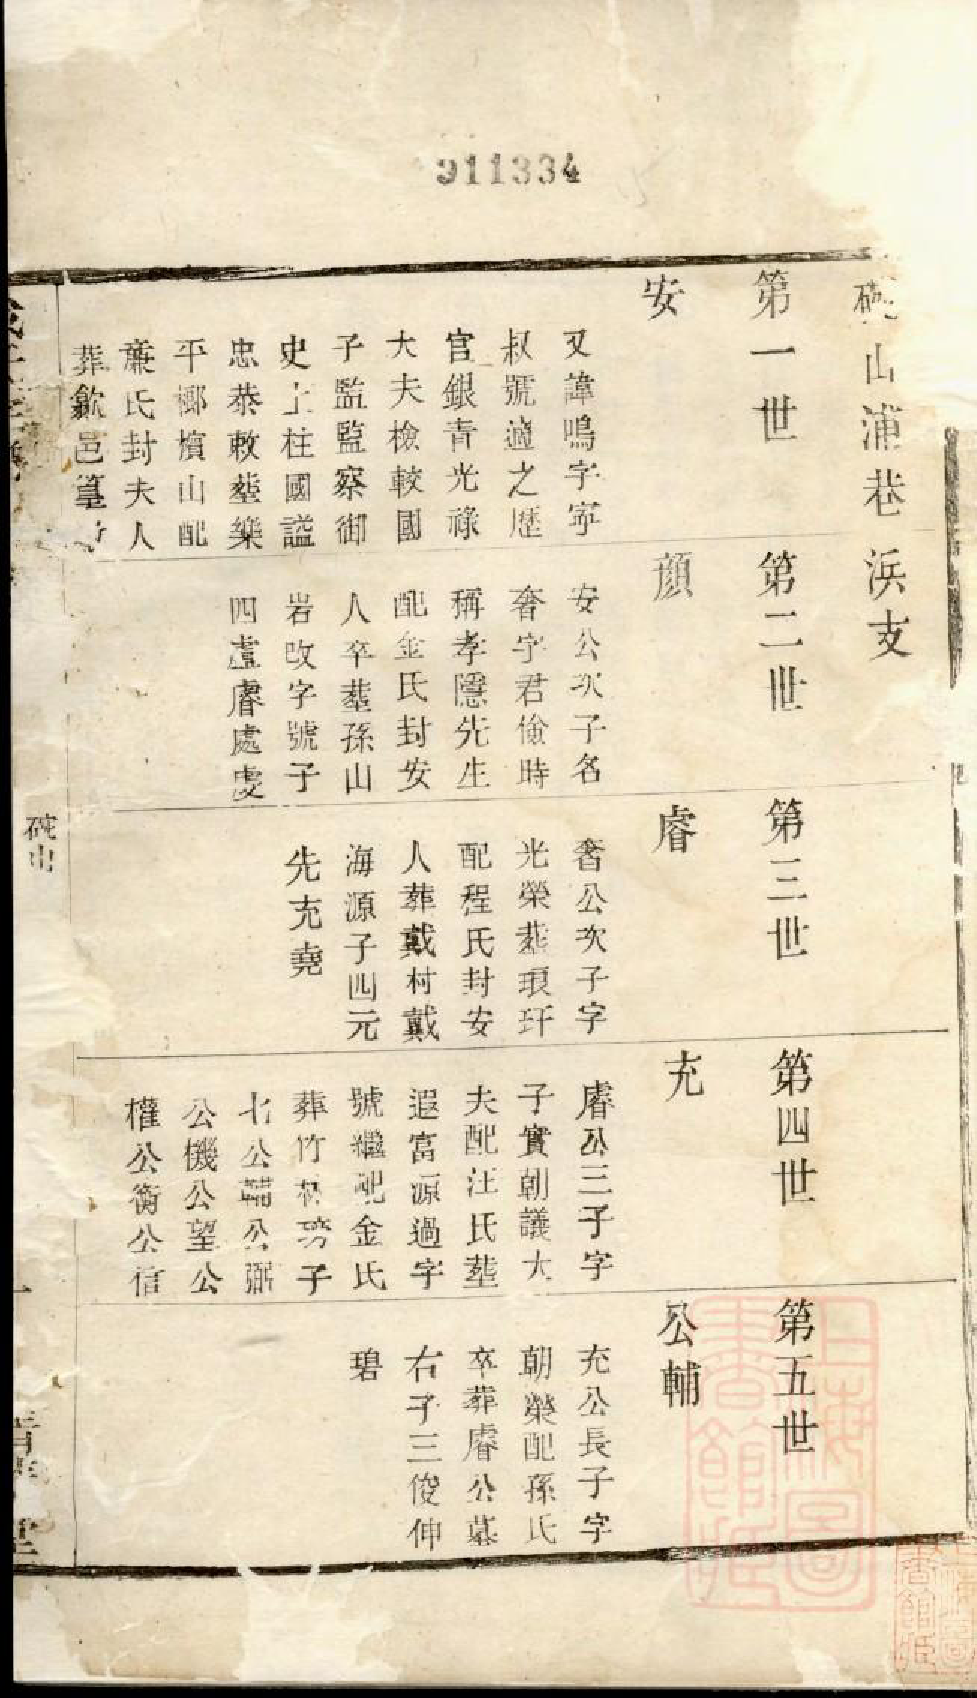 911334
碗山浦巷浜支
第一世
安
又諱鳴字寧
叔號適之歷
官銀青光祿
大夫檢較國
子監監察御
史上柱國謚
忠恭敕塟樂
平櫛檳山配
廉氏封夫人
葬歙邑篁
第二世
顔
安公次子名
奢字君儉時
稱孝隱先生
配金氏封安
人卒塟孫山
岩改字號子
四虛睿處虔
第三世
睿
奢公次子字
光榮塟琅玕
配程氏封安
人葬戴村戴
海源子四元
先充堯
第四世
充
睿公三子字
子實朝議大
夫配汪氏塟
遐富源過字
號繼配金氏
葬竹 塝子
七公輔公弼
公機公望公
權公衡公信
第五世
公輔
充公長子字
朝榮配孫氏
卒葬睿公墓
右子三俊伸
碧
碗山
上海圖書館藏
上海圖書館藏